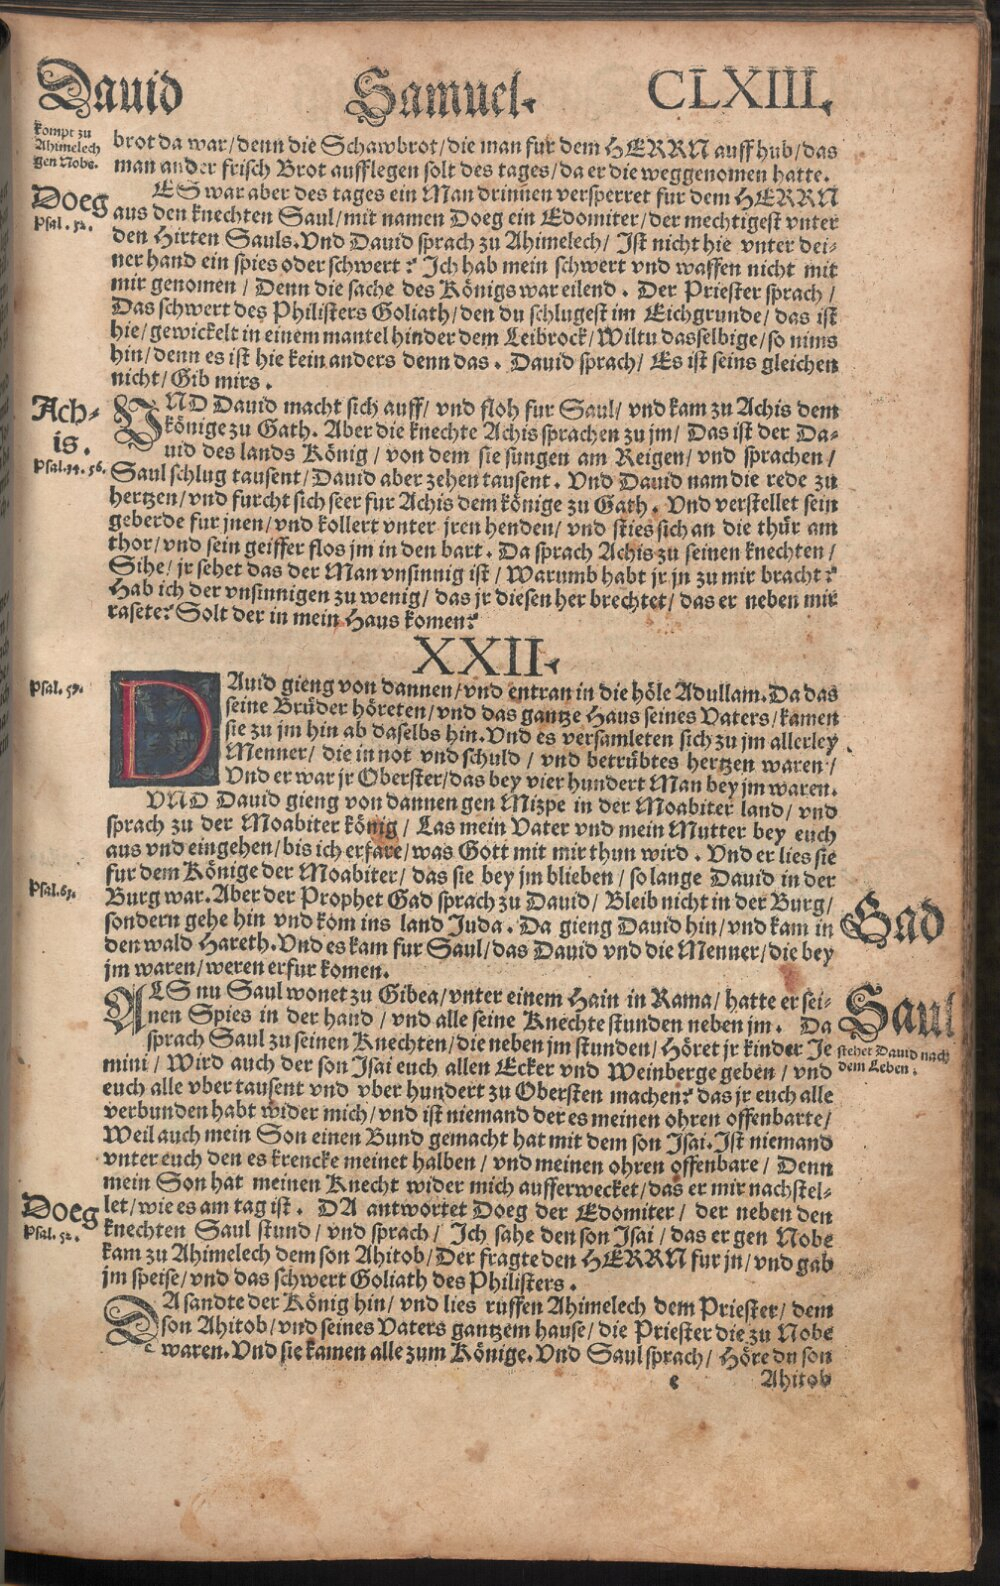 Dauid Samuel. CLXIII.
kompt zu
Ahimelech
gen Nobe.
brot da war/denn die Schawbrot/die man fur dem HERRN auff hub/das
man ander frisch Brot aufflegen solt des tages/da er die weggenomen hatte.
Doeg
Psal. 52.
ES war aber des tages ein Man drinnen versperret fur dem HERRN
aus den knechten Saul/mit namen Doeg ein Edomiter/der mechtigest vnter
den Hirten Sauls. Vnd Dauid sprach zu Ahimelech/ Ist nicht hie vnter dei-
ner hand ein spies oder schwert? Ich hab mein schwert vnd waffen nicht mit
mir genomen/ Denn die sache des Königs war eilend. Der Priester sprach/
Das schwert des Philisters Goliath/den du schlugest im Eichgrunde/ das ist
hie/gewickelt in einem mantel hinder dem Leibrock/Wiltu dasselbige/so nims
hin/denn es ist hie kein anders denn das. Dauid sprach/ Es ist seins gleichen
nicht/Gib mirs.
Ach-
is.
Psal. 34. 56.
VND Dauid macht sich auff/ vnd floh fur Saul/ vnd kam zu Achis dem
könige zu Gath. Aber die knechte Achis sprachen zu jm/ Das ist der Da-
uid des lands König/ von dem sie sungen am Reigen/ vnd sprachen/
Saul schlug tausent/Dauid aber zehen tausent. Vnd Dauid nam die rede zu
hertzen/vnd furcht sich seer fur Achis dem könige zu Gath. Vnd verstellet sein
geberde fur jnen/vnd kollert vnter jren henden/ vnd sties sich an die thür am
thor/vnd sein geiffer flos jm in den bart. Da sprach Achis zu seinen knechten/
Sihe/jr sehet das der Man vnsinnig ist/Warumb habt jr jn zu mir bracht?
Hab ich der vnsinnigen zu wenig/ das jr diesen her brechtet/das er neben mir
rasete? Solt der in mein Haus komen?
XXII.
Psal. 57.
DAuid gieng von dannen/vnd entran in die höle Adullam. Da das
seine Brüder höreten/vnd das gantze Haus seines Vaters/kamen
sie zu jm hin ab daselbs hin. Vnd es versamleten sich zu jm allerley
Menner/ die in not vnd schuld/ vnd betrübtes hertzen waren/
Vnd er war jr Oberster/das bey vier hundert Man bey jm waren.
VND Dauid gieng von dannen gen Mizpe in der Moabiter land/ vnd
sprach zu der Moabiter könig/ Las mein Vater vnd mein Mutter bey euch
aus vnd eingehen/bis ich erfare/was Gott mit mir thun wird. Vnd er lies sie
fur dem Könige der Moabiter/ das sie bey jm blieben/ so lange Dauid in der
Psal. 63.
Burg war. Aber der Prophet Gad sprach zu Dauid/ Bleib nicht in der Burg/
sondern gehe hin vnd kom ins land Juda. Da gieng Dauid hin/vnd kam in
Gad
den wald Hareth. Vnd es kam fur Saul/das Dauid vnd die Menner/die bey
jm waren/weren erfur komen.
ALS nu Saul wonet zu Gibea/vnter einem Hain in Rama/hatte er sei-
nen Spies in der hand/ vnd alle seine Knechte stunden neben jm. Da
Saul
stehet Dauid nach
dem Leben.
sprach Saul zu seinen Knechten/die neben jm stunden/Höret jr kinder Je
mini/ Wird auch der son Isai euch allen Ecker vnd Weinberge geben/ vnd
euch alle vber tausent vnd vber hundert zu Obersten machen? das jr euch alle
verbunden habt wider mich/vnd ist niemand der es meinen ohren offenbarte/
Weil auch mein Son einen Bund gemacht hat mit dem son Isai. Ist niemand
vnter euch den es krencke meinet halben/ vnd meinen ohren offenbare/ Denn
mein Son hat meinen Knecht wider mich aufferwecket/das er mir nachstel-
Doeg
Psal. 52.
let/wie es am tag ist. DA antwortet Doeg der Edomiter/ der neben den
knechten Saul stund/ vnd sprach/ Ich sahe den son Isai/ das er gen Nobe
kam zu Ahimelech dem son Ahitob/Der fragte den HERRN fur jn/vnd gab
jm speise/vnd das schwert Goliath des Philisters.
DA sandte der König hin/ vnd lies ruffen Ahimelech dem Priester/dem
son Ahitob/vnd seines Vaters gantzem hause/die Priester die zu Nobe
waren. Vnd sie kamen alle zum Könige. Vnd Saul sprach/ Höre du son
e Ahitob